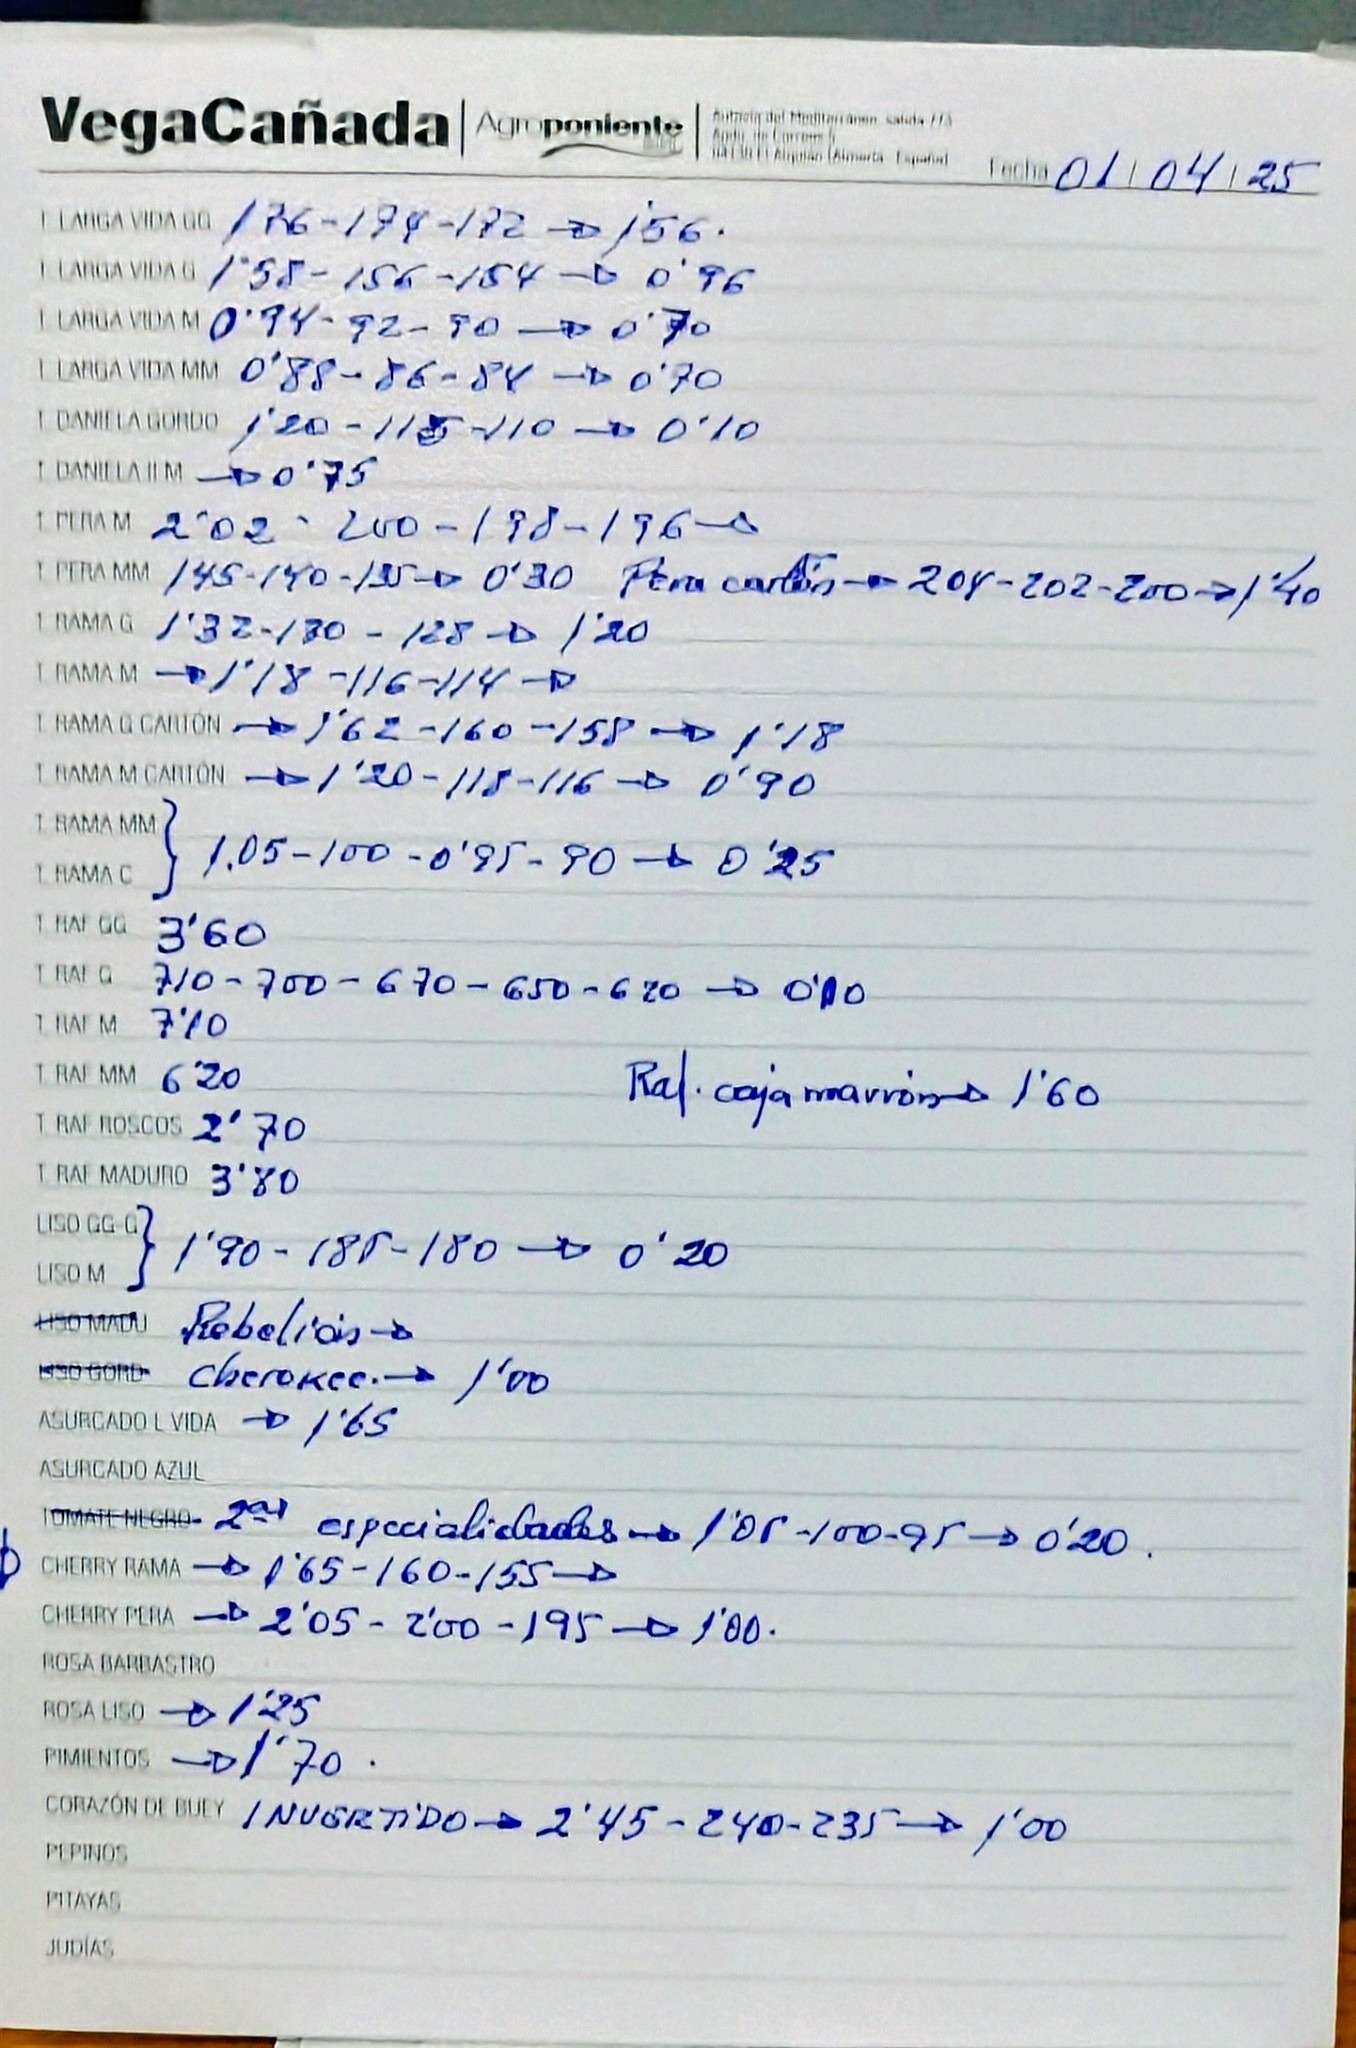 VegaCañada | Agroponiente
Autovía del Mediterráneo, salida 773
Fecha 01 / 04 / 25
T. LARGA VIDA GG 176-174-172 → 1'56.
T. LARGA VIDA G 1'58-156-154 → 0'96
T. LARGA VIDA M 0'94-92-90 → 0'70
T. LARGA VIDA MM 0'88-86-84 → 0'70
T. DANIELA GORDO 1'20-115-110 → 0'10
T. DANIELA II M → 0'75
T. PERA M 2'02-200-198-196 →
T. PERA MM 145-140-135 → 0'30 Pera cartón → 204-202-200 → 1'40
T. RAMA G 1'32-130-128 → 1'20
T. RAMA M → 1'18-116-114 →
T. RAMA G CARTÓN → 1'62-160-158 → 1'18
T. RAMA M CARTÓN → 1'20-118-116 → 0'90
T. RAMA MM
T. RAMA C } 1.05-100-0'95-90 → 0'25
T. RAF GG 3'60
T. RAF G 710-700-670-650-620 → 0'10
T. RAF M 7'10
T. RAF MM 6'20 Raf. caja marrón → 1'60
T. RAF ROSCOS 2'70
T. RAF MADURO 3'80
LISO GG-G
LISO M } 1'90-185-180 → 0'20
LISO MADU Rebelión →
LISO GORD Cherokee. → 1'00
ASURCADO L VIDA → 1'65
ASURCADO AZUL
TOMATE NEGRO 2as especialidades → 1'05-100-95 → 0'20.
CHERRY RAMA → 1'65-160-155 →
CHERRY PERA → 2'05-2'00-195 → 1'00.
ROSA BARBASTRO
ROSA LISO → 1'25
PIMIENTOS → 1'70.
CORAZÓN DE BUEY INVERTIDO → 2'45-240-235 → 1'00
PEPINOS
PITAYAS
JUDÍAS